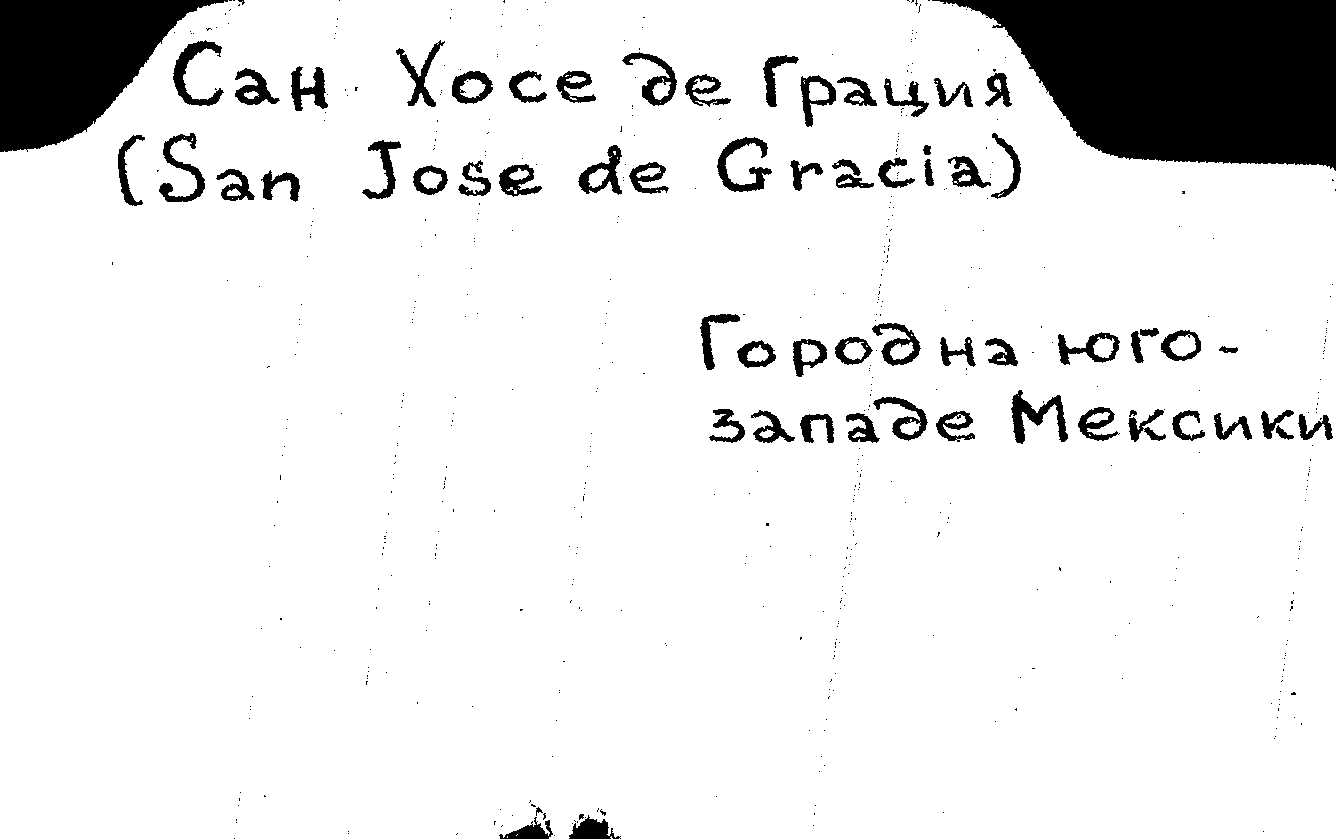 Сан Хосе де Грация
(San Jose de Gracia)
Город на юго-
западе Мексики